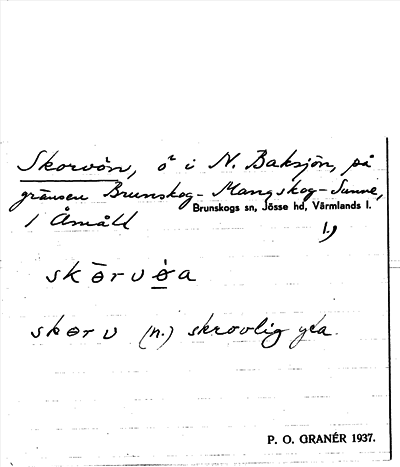 Skorvön, ö i N. Baksjön, på
gränsen Brunskog-Mangskog-Sunne,
Brunskogs sn, Jösse hd, Värmlands l.
1 Åmåll
1.)
skɵ̄rvɵ̀a
skɵrv (n.) skrovlig yta.
P. O. GRANÉR 1937.